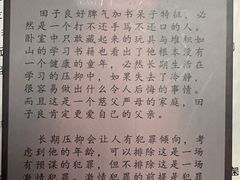 田子良好脾气加书呆子特征，必
然是一个打不还手骂不还口的人。
卧室中只敢藏起来的玩具与堆积如
山的学习书籍也看出了他根本没有
一个健康的童年，必然长期生活在
学习的压抑中，如果失去了冷静，
很容易做出什么令人后悔的事情。
而且这是一个慈父严母的家庭，田
子良肯定更爱自己的父亲。
长期压抑会让人有犯罪倾向，考
虑到他的年龄，可以排除这是一场
有预谋的犯罪，但不排除这是一场
激情犯罪。激情犯罪的前提是犯罪